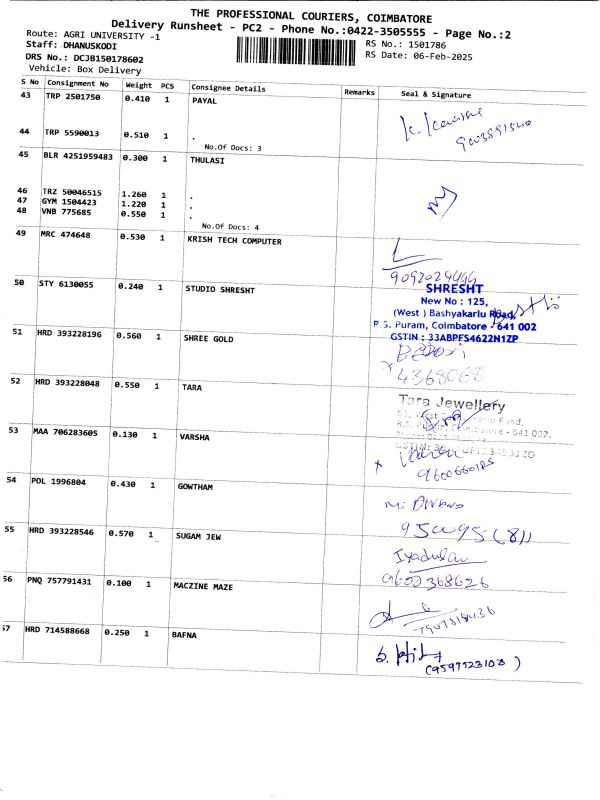 THE PROFESSIONAL COURIERS, COIMBATORE
Delivery Runsheet - PC2 - Phone No.:0422-3505555 - Page No.:2
Route: AGRI UNIVERSITY -1
Staff: DHANUSKODI
RS No.: 1501786
DRS No.: DCJB150178602
RS Date: 06-Feb-2025
Vehicle: Box Delivery
S No Consignment No Weight PCS Consignee Details Remarks Seal & Signature
43 TRP 2501750 0.410 1 PAYAL
44 TRP 5590013 0.510 1 .
No.Of Docs: 3
45 BLR 4251959483 0.300 1 THULASI
46 TRZ 50046515 1.260 1 .
47 GYM 1504423 1.220 1 .
48 VNB 775685 0.550 1 .
No.Of Docs: 4
49 MRC 474648 0.530 1 KRISH TECH COMPUTER
50 STY 6130055 0.240 1 STUDIO SHRESHT
SHRESHT
New No : 125,
(West ) Bashyakarlu Road,
R.S. Puram, Coimbatore - 641 002
GSTIN : 33ABPFS4622N1ZP
51 HRD 393228196 0.560 1 SHREE GOLD
4368068
52 HRD 393228048 0.550 1 TARA
Tara Jewellery
Road,
641 002.
53 MAA 706283605 0.130 1 VARSHA
54 POL 1996804 0.430 1 GOWTHAM
55 HRD 393228546 0.570 1 SUGAM JEW
56 PNQ 757791431 0.100 1 MACZINE MAZE
57 HRD 714588668 0.250 1 BAFNA